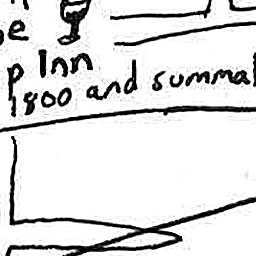 e
p Inn
1800 and summa